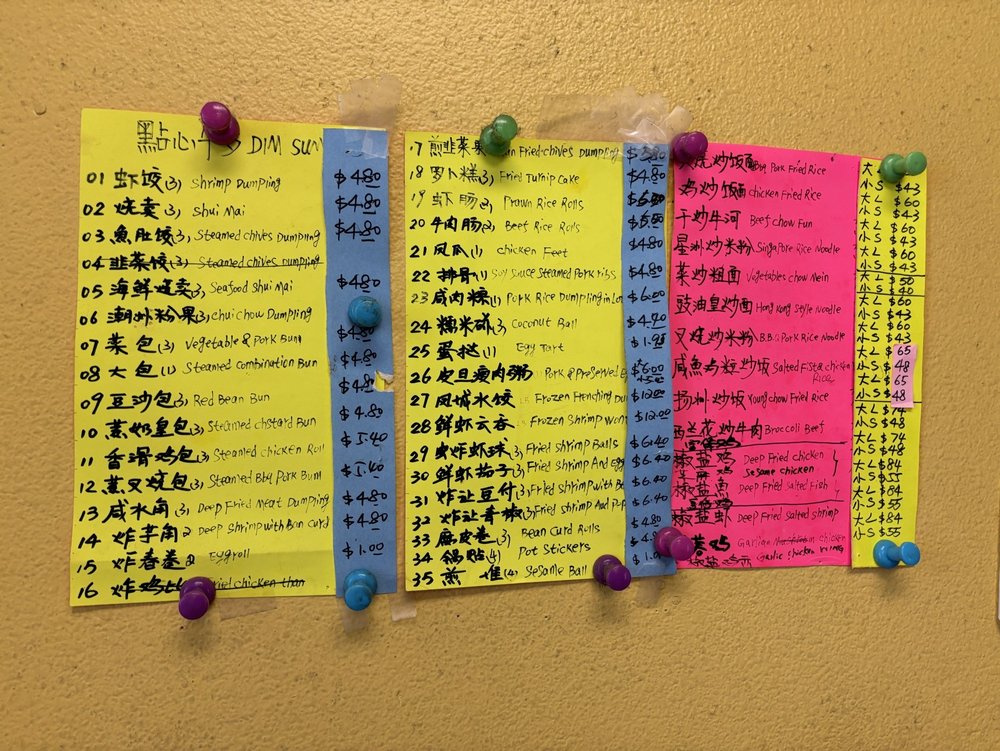 點心 DIM SUM
01 虾饺(3) Shrimp Dumpling $4.80
02 烧卖(3) Shui Mai $4.80
03 魚肚饺(3) Steamed chives Dumpling $4.80
04 韭菜饺(3) Steamed chives dumpling
05 海鲜烧卖(3) Seafood Shui Mai $4.80
06 潮州粉果(3) chui chow Dumpling
07 菜包(3) Vegetable & Pork Bun $4.80
08 大包(1) Steamed Combination Bun $4.80
09 豆沙包(3) Red Bean Bun
10 蒸奶皇包(3) Steamed Custard Bun $4.80
11 香滑鸡包(3) Steamed chicken Roll $5.40
12 蒸叉烧包(3) Steamed Bbq Pork Bun $5.40
13 咸水角(3) Deep Fried Meat Dumpling $4.80
14 炸芋角2 Deep Shrimp with Ban Curd $4.80
15 炸春卷2 Eggroll $1.00
16 炸鸡 Fried chicken than
17 煎韭菜果 Fried chives Dumpling
18 罗卜糕(3) Fried Turnip Cake $4.80
19 虾肠(3) Prawn Rice Rolls
20 牛肉肠(2) Beef Rice Rolls
21 凤瓜(1) chicken Feet $4.80
22 排骨(1) Soy Sauce Steamed Pork ribs $4.80
23 咸肉粽(1) Pork Rice Dumpling in $6.00
24 糯米糍(3) Coconut Ball $4.70
25 蛋挞(1) Egg Tart
26 皮旦瘦肉粥 Pork & Preserved $6.00
27 凤城水饺 Frozen Frenching Dum $12.00
28 鲜虾云吞 Frozen Shrimp Won $12.00
29 炸虾球(3) Fried shrimp Balls $6.40
30 鲜虾茄子(3) Fried Shrimp And Egg $6.40
31 炸让豆付(3) Fried Shrimp with B
32 炸让青椒(3) Fried Shrimp And Pep $6.40
33 腐皮卷(3) Bean Curd Rolls $4.80
34 锅贴(4) Pot Stickers
35 煎堆(4) Sesame Ball
烧炒饭面 Bbq Pork Fried Rice 小S $43
鸡炒饭面 chicken Fried Rice 大L $60 小S $43
干炒牛河 Beef chow Fun 大L $60 小S $43
星洲炒米粉 Singapore Rice Noodle 大L $60 小S $43
菜炒粗面 Vegetables chow Mein 大L $50 小S $40
豉油皇炒面 Hong Kong Style Noodle 大L $60 小S $43
叉烧炒米粉 B.B.Q Pork Rice Noodle 大L $60 小S $43
咸魚鸡粒炒饭 Salted Fish & chicken Rice 大L $65 小S $48
大L 65 小S $48
扬州炒饭 Young chow Fried Rice
西兰花炒牛肉 Broccoli Beef 大L $74 小S $48
椒盐鸡 Deep Fried chicken 大L $84 小S $55
Sesame chicken
椒盐魚 Deep Fried Salted Fish 大L $84 小S $55
椒盐虾 Deep Fried Salted shrimp 大L $84 小S $55
chicken
garlic chicken wing